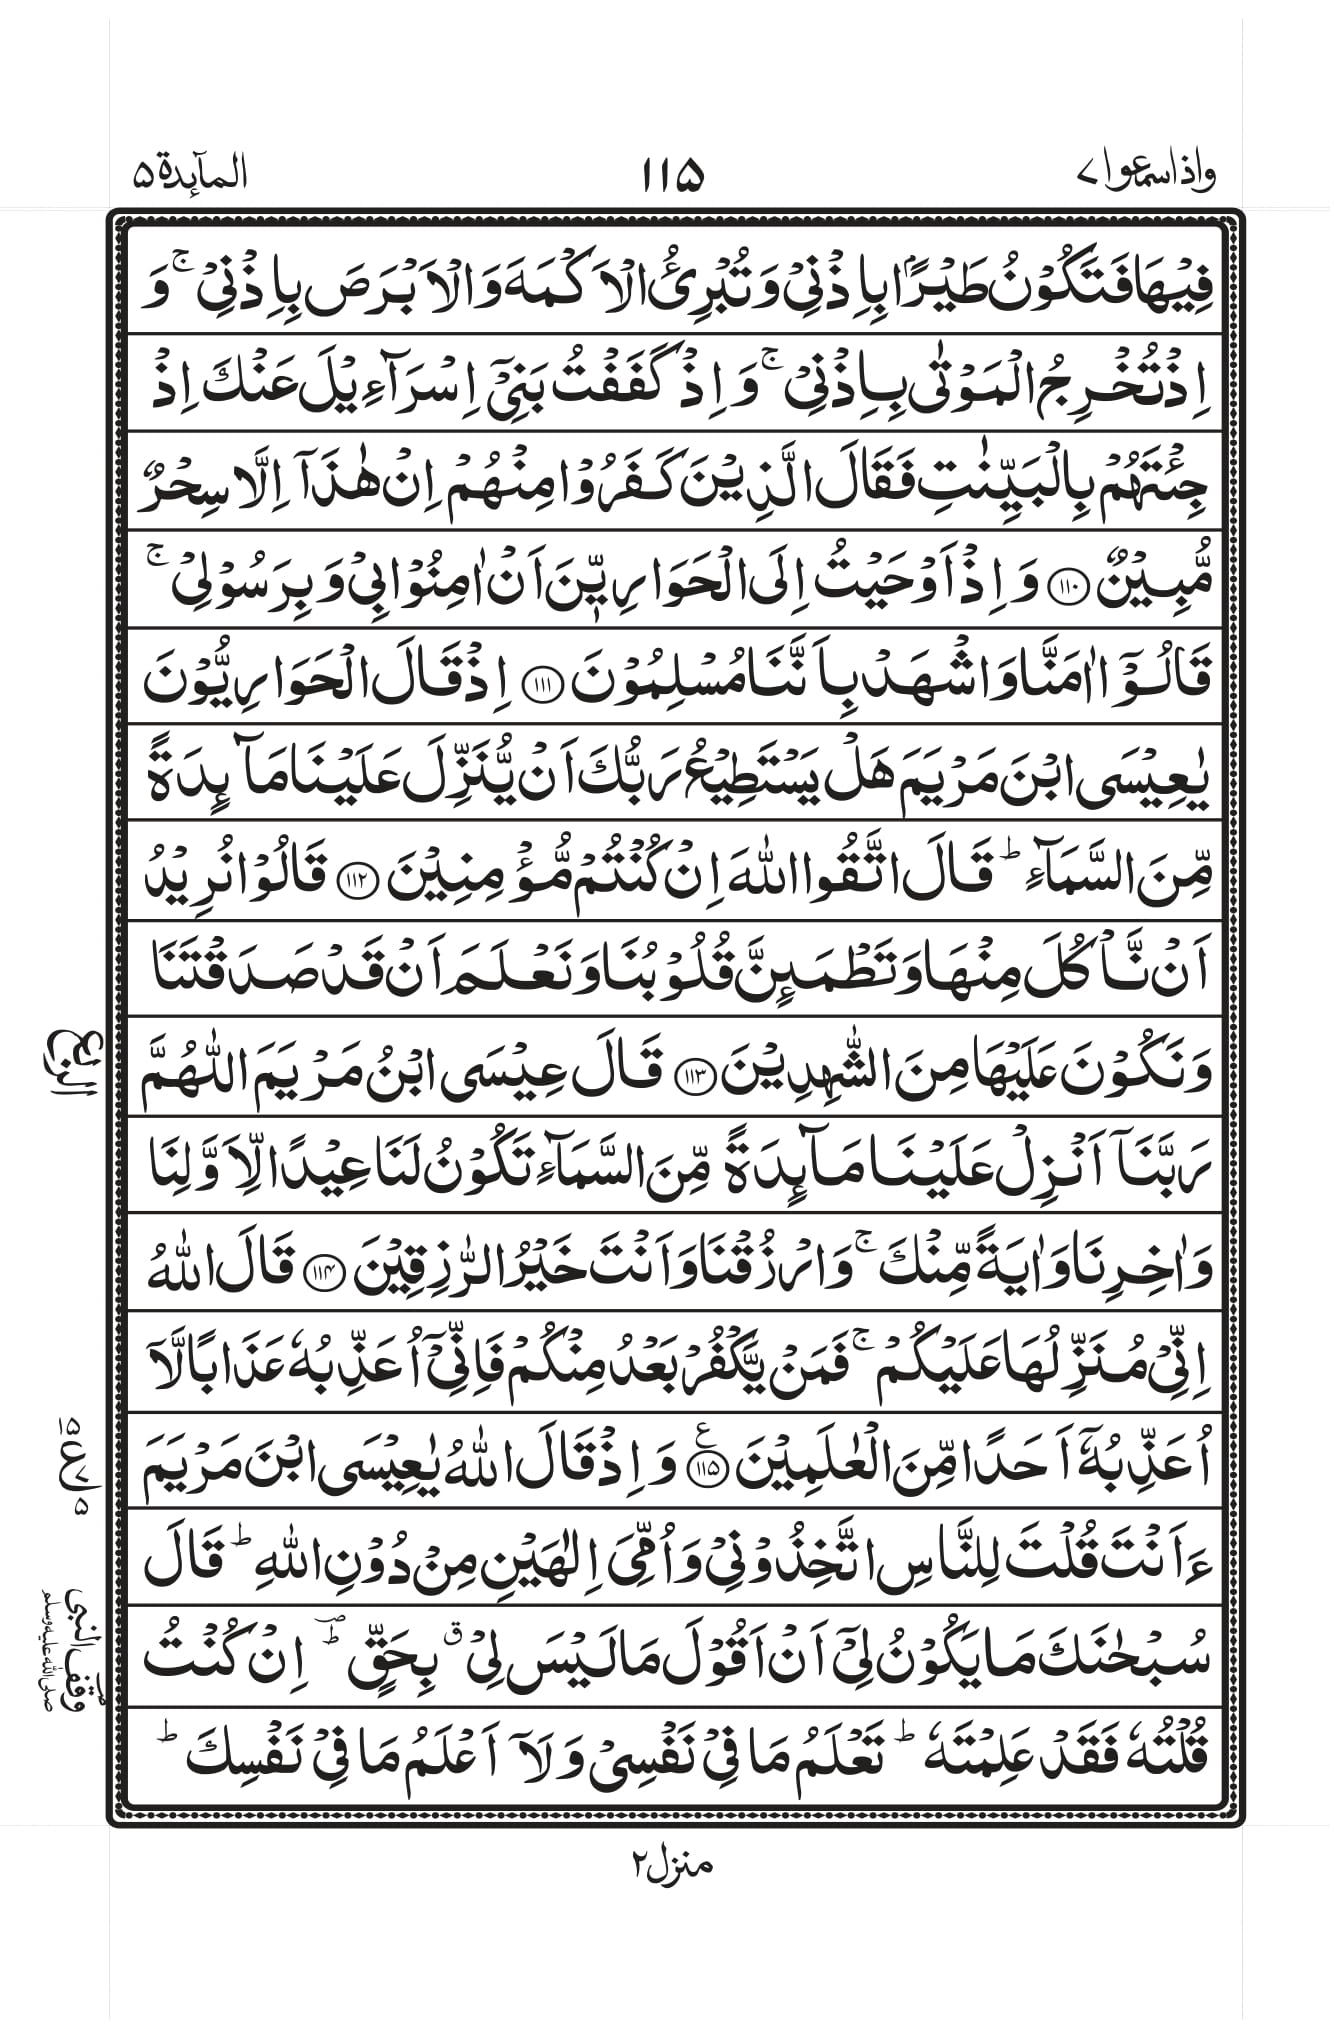 واذاسمعوا ۷
۱۱۵
المآىِٕدة ۵
فِیۡہَا فَتَکُوۡنُ طَیۡرًۢا بِاِذۡنِیۡ وَ تُبۡرِیُٔ الۡاَکۡمَہَ وَ الۡاَبۡرَصَ بِاِذۡنِیۡ ۚ وَ
اِذۡ تُخۡرِجُ الۡمَوۡتٰی بِاِذۡنِیۡ ۚ وَ اِذۡ کَفَفۡتُ بَنِیۡۤ اِسۡرَآءِیۡلَ عَنۡکَ اِذۡ
جِئۡتَہُمۡ بِالۡبَیِّنٰتِ فَقَالَ الَّذِیۡنَ کَفَرُوۡا مِنۡہُمۡ اِنۡ ہٰذَاۤ اِلَّا سِحۡرٌ
مُّبِیۡنٌ ﴿۱۱۰﴾ وَ اِذۡ اَوۡحَیۡتُ اِلَی الۡحَوَارِیّٖنَ اَنۡ اٰمِنُوۡا بِیۡ وَ بِرَسُوۡلِیۡ ۚ
قَالُوۡۤا اٰمَنَّا وَ اشۡہَدۡ بِاَنَّنَا مُسۡلِمُوۡنَ ﴿۱۱۱﴾ اِذۡ قَالَ الۡحَوَارِیُّوۡنَ
یٰعِیۡسَی ابۡنَ مَرۡیَمَ ہَلۡ یَسۡتَطِیۡعُ رَبُّکَ اَنۡ یُّنَزِّلَ عَلَیۡنَا مَآئِدَۃً
مِّنَ السَّمَآءِ ؕ قَالَ اتَّقُوا اللّٰہَ اِنۡ کُنۡتُمۡ مُّؤۡمِنِیۡنَ ﴿۱۱۲﴾ قَالُوۡا نُرِیۡدُ
اَنۡ نَّاۡکُلَ مِنۡہَا وَ تَطۡمَئِنَّ قُلُوۡبُنَا وَ نَعۡلَمَ اَنۡ قَدۡ صَدَقۡتَنَا
وَ نَکُوۡنَ عَلَیۡہَا مِنَ الشّٰہِدِیۡنَ ﴿۱۱۳﴾ قَالَ عِیۡسَی ابۡنُ مَرۡیَمَ اللّٰہُمَّ
رَبَّنَاۤ اَنۡزِلۡ عَلَیۡنَا مَآئِدَۃً مِّنَ السَّمَآءِ تَکُوۡنُ لَنَا عِیۡدًا لِّاَوَّلِنَا
وَ اٰخِرِنَا وَ اٰیَۃً مِّنۡکَ ۚ وَ ارۡزُقۡنَا وَ اَنۡتَ خَیۡرُ الرّٰزِقِیۡنَ ﴿۱۱۴﴾ قَالَ اللّٰہُ
اِنِّیۡ مُنَزِّلُہَا عَلَیۡکُمۡ ۚ فَمَنۡ یَّکۡفُرۡ بَعۡدُ مِنۡکُمۡ فَاِنِّیۡۤ اُعَذِّبُہٗ عَذَابًا لَّاۤ
اُعَذِّبُہٗۤ اَحَدًا مِّنَ الۡعٰلَمِیۡنَ ﴿۱۱۵﴾ ع وَ اِذۡ قَالَ اللّٰہُ یٰعِیۡسَی ابۡنَ مَرۡیَمَ
ءَاَنۡتَ قُلۡتَ لِلنَّاسِ اتَّخِذُوۡنِیۡ وَ اُمِّیَ اِلٰہَیۡنِ مِنۡ دُوۡنِ اللّٰہِ ؕ قَالَ
سُبۡحٰنَکَ مَا یَکُوۡنُ لِیۡۤ اَنۡ اَقُوۡلَ مَا لَیۡسَ لِیۡ ٭ بِحَقٍّ ؕؔ اِنۡ کُنۡتُ
قُلۡتُہٗ فَقَدۡ عَلِمۡتَہٗ ؕ تَعۡلَمُ مَا فِیۡ نَفۡسِیۡ وَ لَاۤ اَعۡلَمُ مَا فِیۡ نَفۡسِکَ ؕ
الربع
۱۵
ع ۷
۵
وقف النبی
صلی اللہ علیہ وسلم
منزل ۲